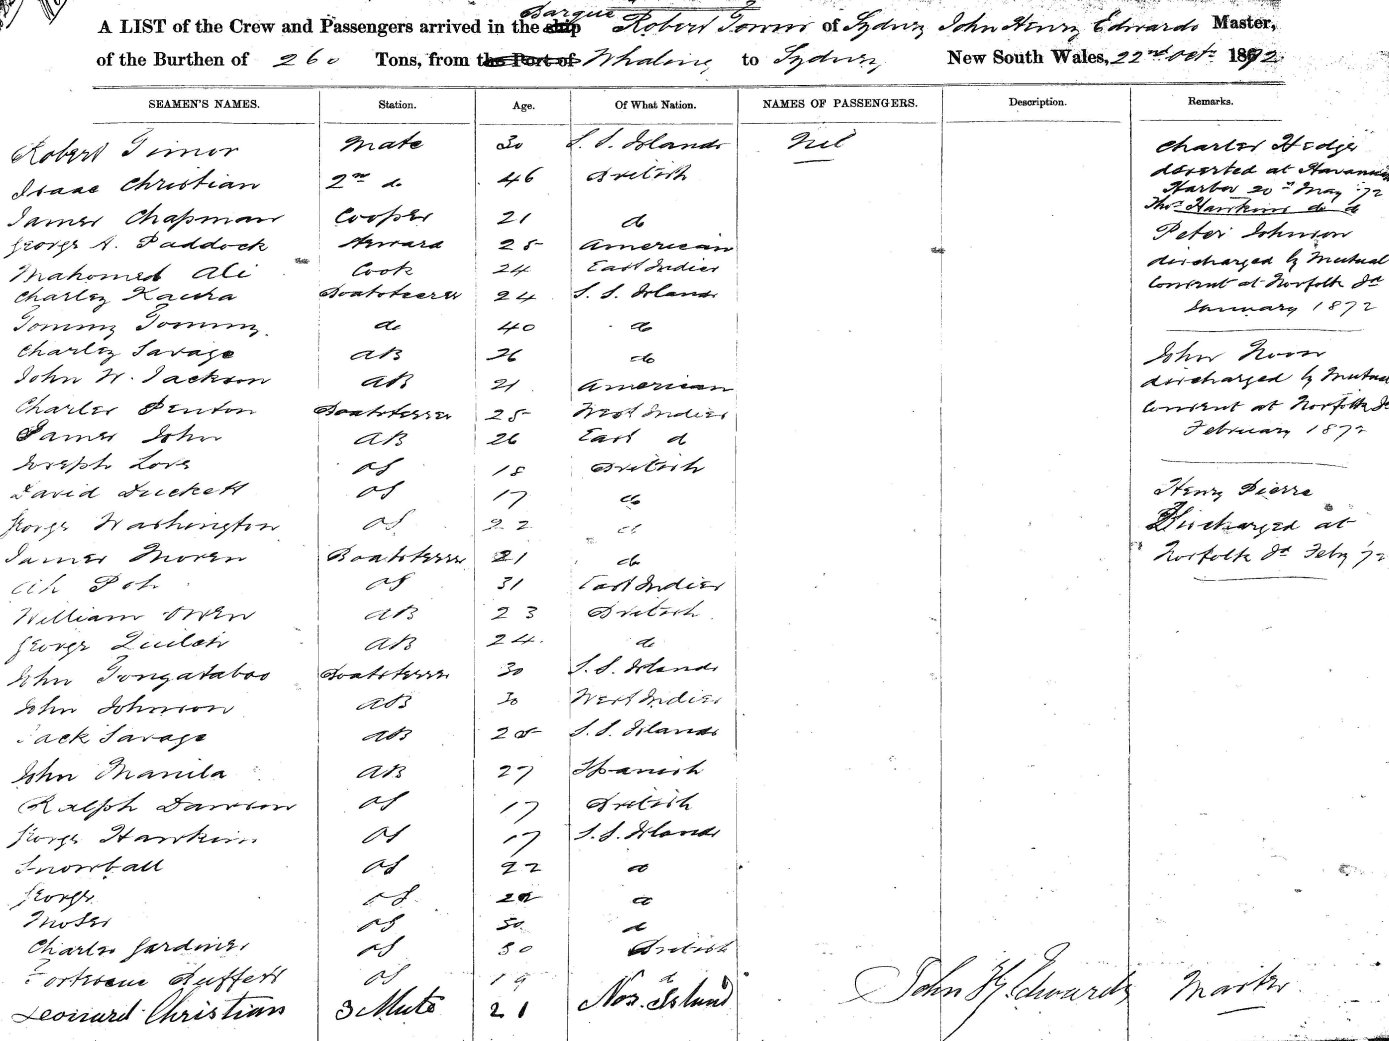 A LIST of the Crew and Passengers arrived in the ship Barque Robert Towns of Sydney John Henry Edwards Master,
of the Burthen of 260 Tons, from the Port of Whaling to Sydney New South Wales, 22nd Octr 1872
SEAMEN'S NAMES. Station. Age. Of What Nation. NAMES OF PASSENGERS. Description. Remarks.
Robert Timor Mate 30 S. S. Islands Nil
Isaac Christian 2nd do 46 British
James Chapman Cooper 21 do
George A. Paddock Steward 25 American
Mahomed Ali Cook 24 East Indies
Charley Boatsteerer 24 S. S. Islands
Tommy Tommy do 40 do
Charley Savage AB 26 do
John W. Jackson AB 21 American
Charles Penton Boatsteerer 25 West Indies
James John AB 26 East d
Joseph Love OS 18 British
David Duckett OS 17 do
George Washington OS 22 d
James Moren Boatsteerer 21 do
Ah Poh OS 31 East Indies
William Owen AB 23 British
George Quilch AB 24 do
John Tongataboo Boatsteerer 30 S. S. Islands
John Johnson AB 30 West Indies
Jack Savage AB 25 S. S. Islands
John Manila AB 27 Spanish
Ralph Dawson OS 17 British
George Hawkins OS 17 S. S. Islands
Snowball OS 22 do
George OS 22 d
Moses OS 30 d
Charles Gardiner OS 30 British
Fortescue Buffett OS 19 do
Leonard Christian 3 Mate 21 Nor. Island
Charles Hedges
deserted at Havannah
Harbor 20th May '72
Thos Hawkins do d
Peter Johnson
discharged by Mutual
Consent at Norfolk Id
January 1872
John Noon
discharged by Mutual
Consent at Norfolk Id
February 1872
Henry Pierre
Discharged at
Norfolk Id Feby '72
John Hy. Edwards Master